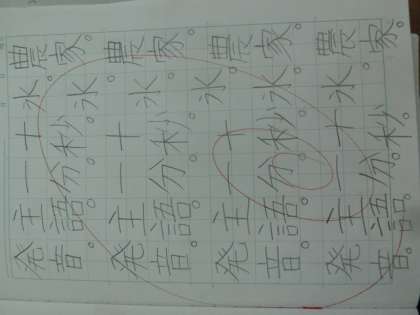 農家。農家。農家。農家。
水。水。水。水。水。水。
十秒。十秒。十秒。十秒。
一分。一分。一分。一分。
主語。主語。主語。主語。
発音。発音。発音。発音。